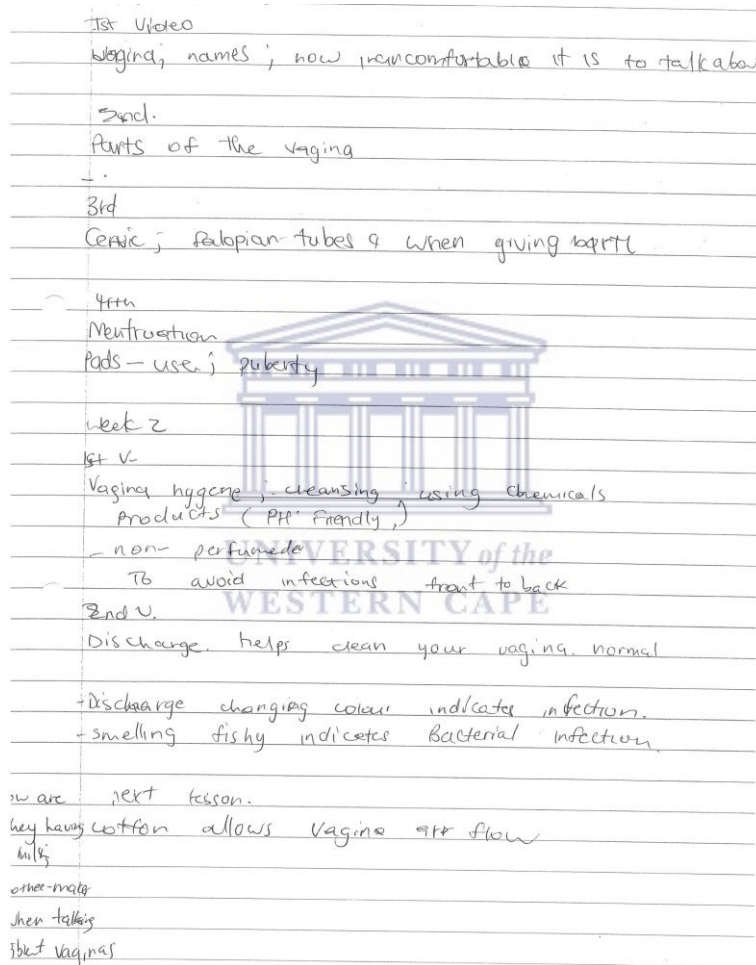 1st Video
vagina, names ; how uncomfortable it is to talk abou
2nd.
Parts of the vagina
3rd
Cervic ; falopian tubes & when giving
4rth
Mentruation
Pads - use ; puberty
week 2
1st V-
Vagina hygene ; cleansing ; using chemicals
products ( PH Friendly,)
- non- perfumede
UNIVERSITY of the
To avoid infections front to back
WESTERN CAPE
2nd V.
Discharge. helps clean your vagina. normal
- Discharge changing colour indicates infection.
- smelling fishy indicates Bacterial infection.
ow are next lesson.
hey having cotton allows vagina air flow
when talking
vaginas